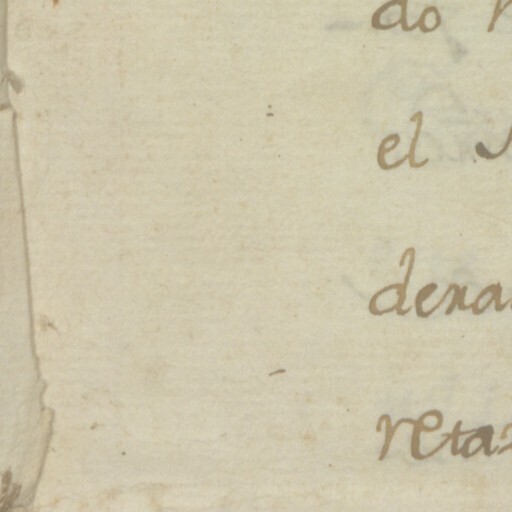 do
el
dexa
reta